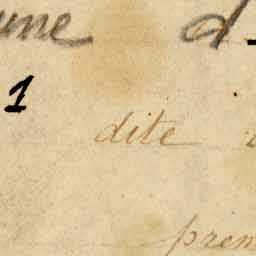 une d
1
dite
pren